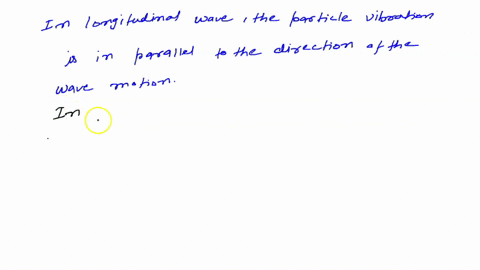 In longitudinal wave, the particle vibration
is in parallel to the direction of the
wave motion.
In